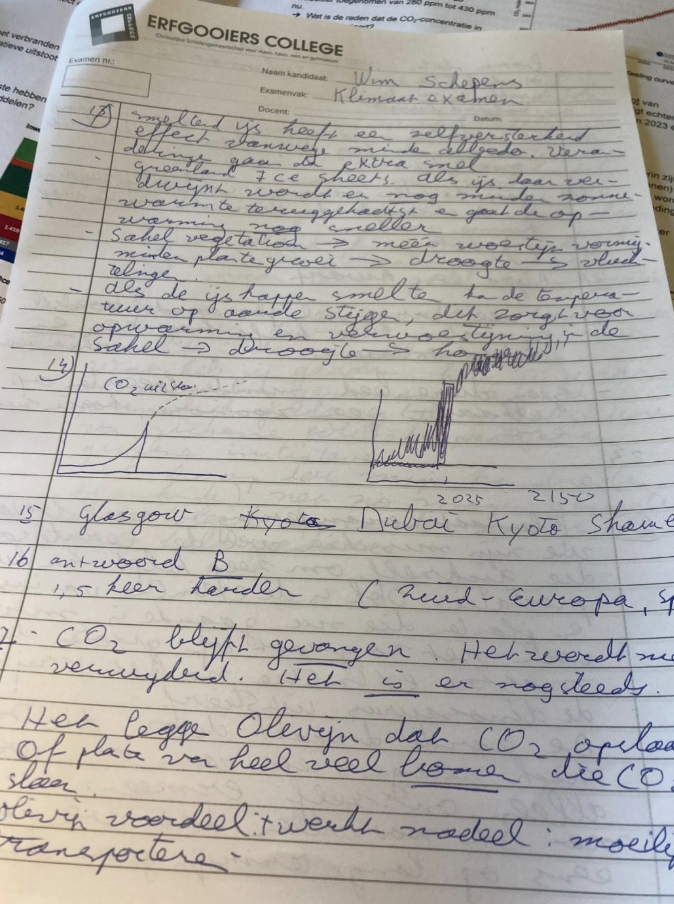 nu.
→ Wat is de reden dat de CO₂-concentratie in
280 ppm tot 430 ppm
ERFGOOIERS COLLEGE
Examen nr.:
Naam kandidaat: Wim Schepens
Examenvak: Klimaat examen
Docent:
Datum:
13) smeltend ijs heeft ee zelfversterkend
effect vanwege minde albedo. Veran
deringe gaan dit extra snel
- groenland Ice sheets, als ijs daar ver-
dwijnt wordt er nog minder zonne-
warmte teruggekaatst e gaat de op-
warming nog sneller
- Sahel vegetation → meer woestijn vorming.
minder plante groei → droogte → vluch-
telinge.
- als de ijskappen smelte kan de tempera-
tuur op aarde stijge, dit zorgt voor
opwarming en verwoestijning in de
Sahel → droogte →
14)
CO₂ uitstoo
2025 2150
15 Glasgow Kyoto Dubai Kyoto Sharm
16 antwoord B
1,5 keer harder ( Zuid-Europa, Sp
CO₂ blijft gevangen. Het wordt
verwijderd. Het is er nog steeds.
Het legge Olevijn dat CO₂ opslaa
Of plate van heel veel bomen die CO₂
slaan.
olevijn voordeel: + werkt nadeel: moeilij
transportere